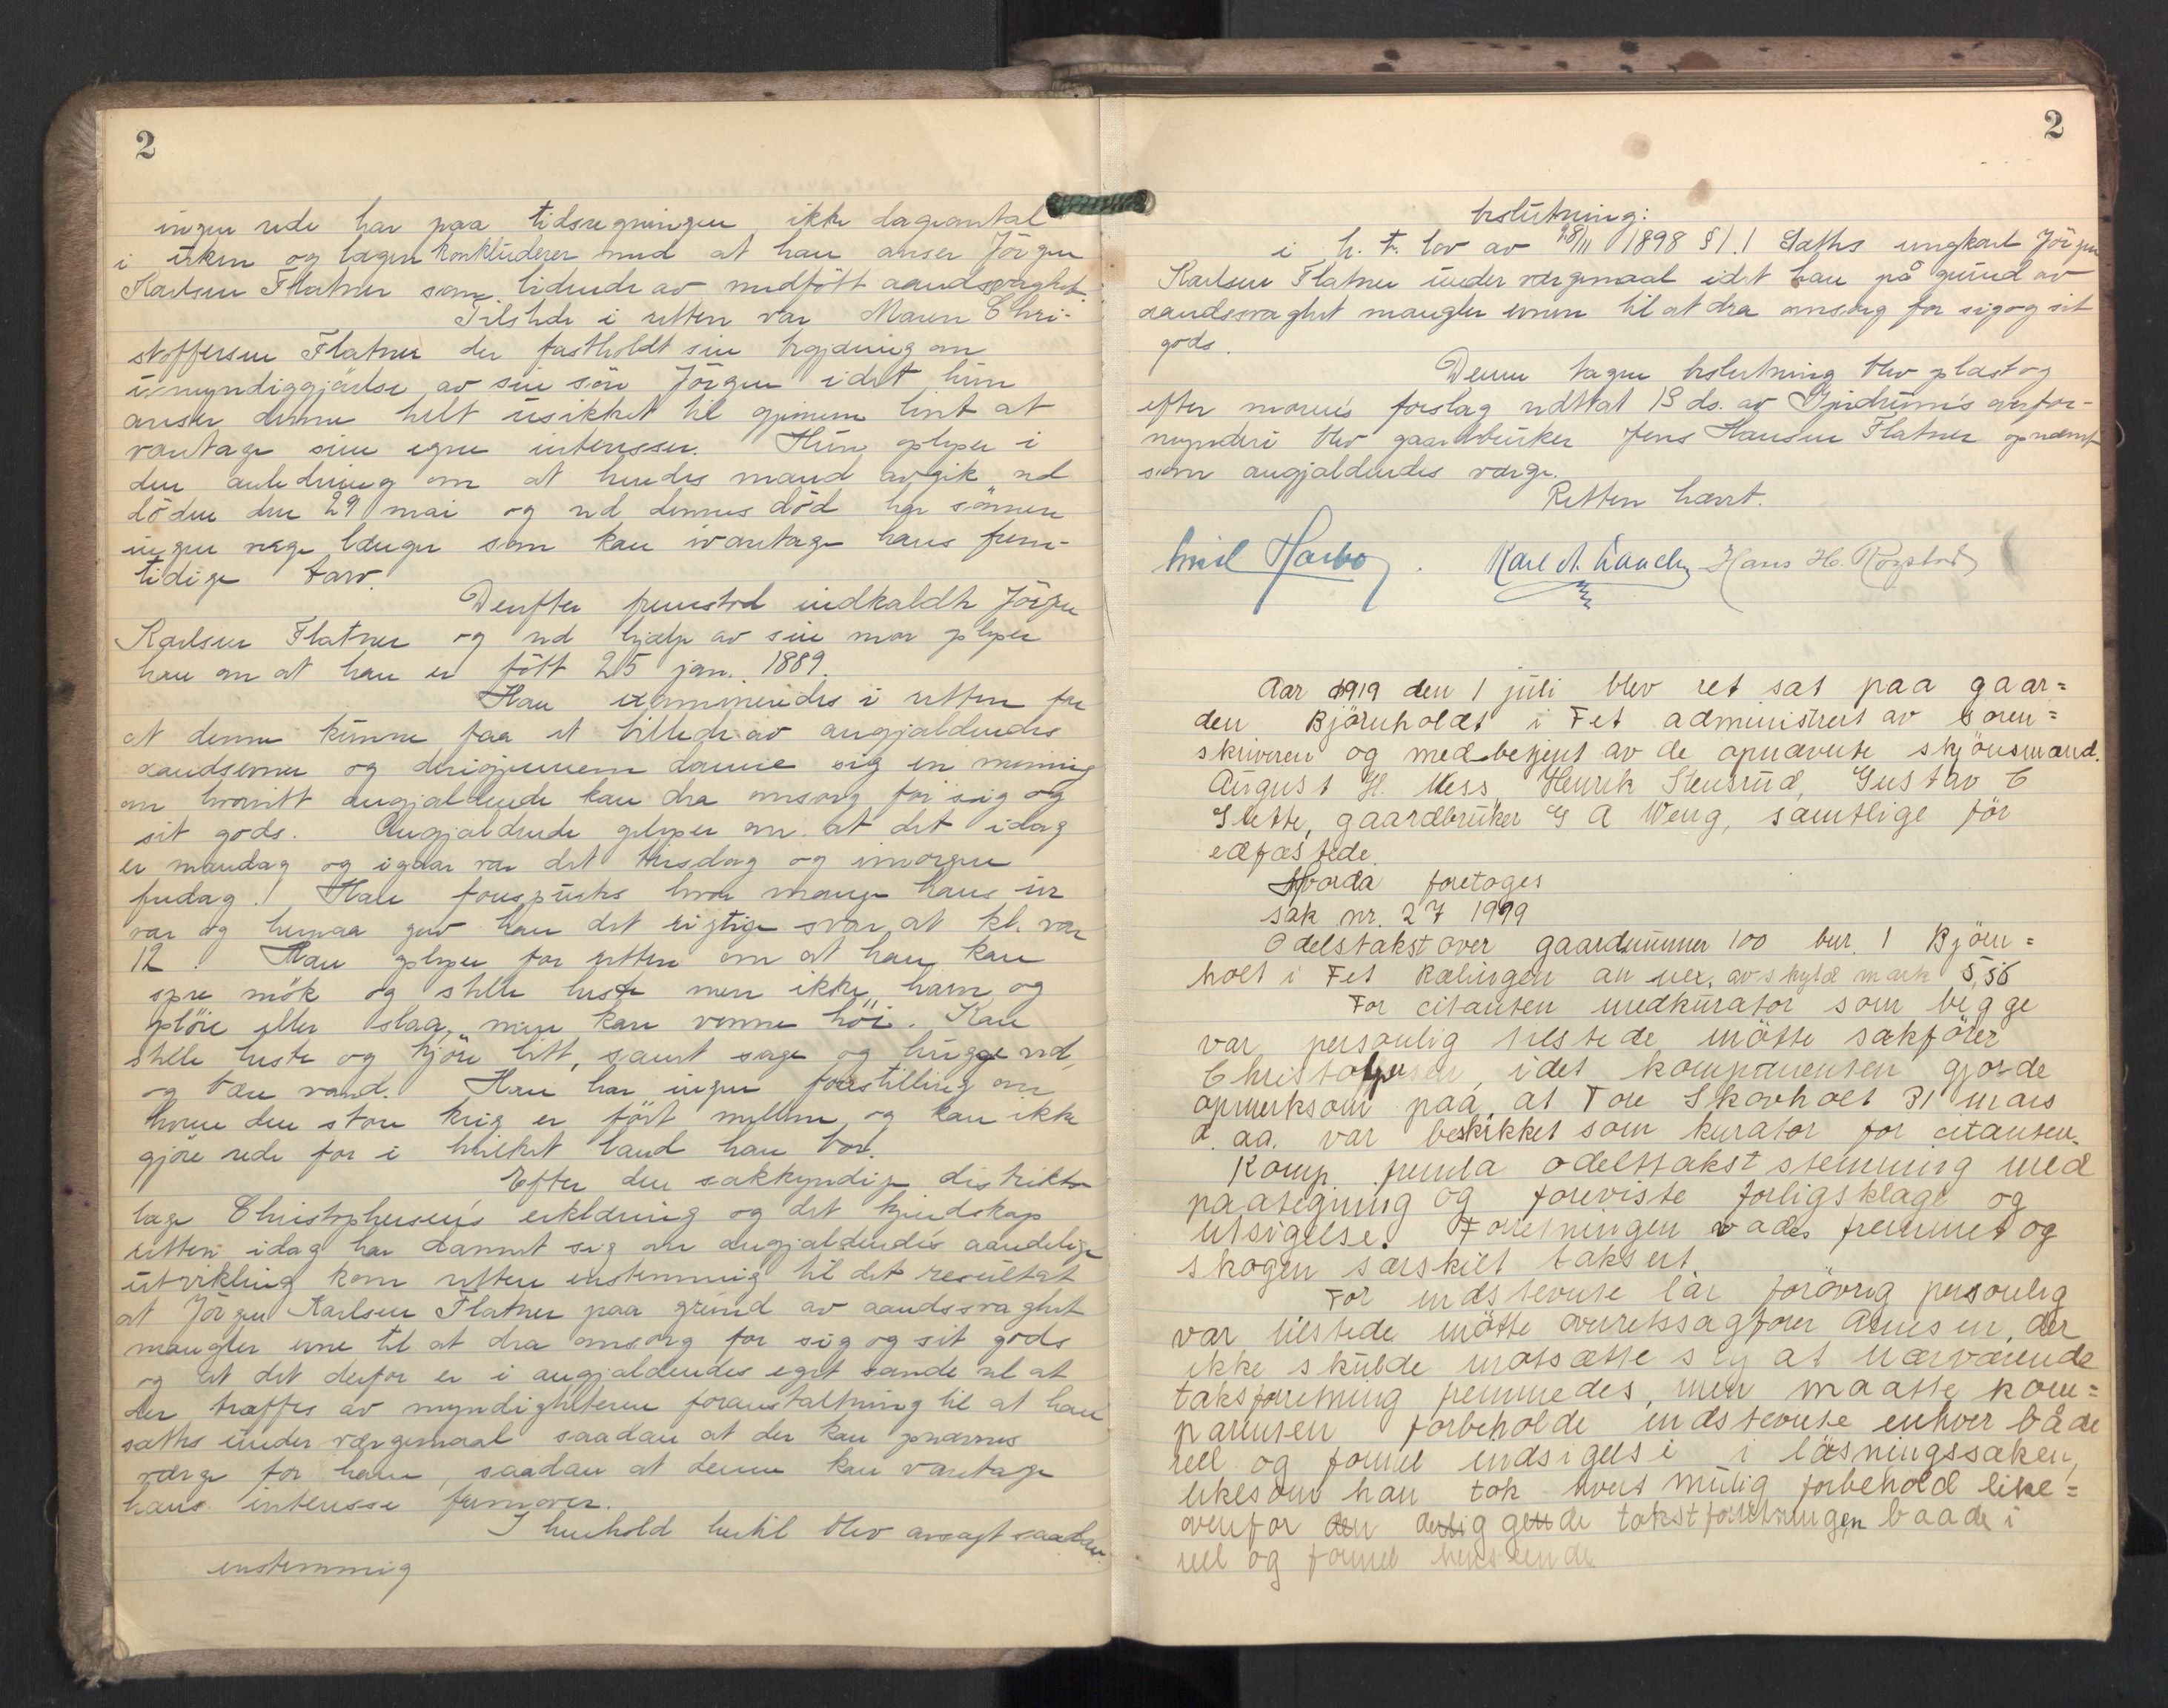 2
ingen rede har paa tidsregningen ikke dageantal
i uken og lægen konkluderer med at han anser Jörgen
Karlsen Flatner som lidende av medfött aandssvaghet.
Tilstede i retten var Maren Chri-
stoffersen Flatner der fastholdt sin begjæring om
umyndiggjörelse av sin sön Jörgen idet hun
anser denne helt uskikket til gjennem livet at
varetage sine egne interesser. Hun oplyser i
den anledning om at hendes mand avgik ved
döden den 29 mai og ved dennes död har sönnen
ingen værge længer som kan ivaretage hans frem-
tidige tarv.
Derefter fremstod indkaldte Jörgen
Karlsen Flatner og ved hjælp av sin mor oplyser
han om at han er fött 25 jan. 1889.
Han examineredes i retten for
at denne kunne faa et billede av angjældendes
aandsevner og derigjennem danne sig en mening
om hvorvitt angjældende kan dra omsorg for sig og
sit gods. Angjældende oplyser om at det idag
er mandag og igaar var det tirsdag og imorgen
fredag. Han forespurtes hvor mange hans ur
var og herpaa gav han det rigtige svar, at kl. var
12. Han oplyser for retten om at han kan
spre mök og stelle heste men ikke harve og
plöie eller slaa, men kan venne höi. Kan
stelle heste og kjöre litt, samt sage og hugge ved,
og bære vand. Han har ingen forestilling om
hvem den store krig er fört mellem og kan ikke
gjöre rede for i hvilket land han bor.
Efter den sakkyndige distrikts-
læge Christophersen's erklæring og det kjendskap
retten idag har dannet sig om angjældende's aandelige
utvikling kom retten enstemmig til det resultat
at Jörgen Karlsen Flatner paa grund av aandssvaghet
mangler evne til at dra omsorg for sig og sit gods
og at det derfor er i angjældendes eget sande vel at
der træffes av myndigheterne foranstaltning til at han
sættes under værgemaal saadan at der kan opnævnes
værge for ham, saadan at denne kan varetage
hans interesse fremover.
I henhold hertil blev avsagt saadan
enstemmig
2
beslutning:
i h. t. lov av 28/11 1898 § 1.1 Sættes ungkarl Jörgen
Karlsen Flatner under værgemaal idet han på grund av
aandssvaghet mangler evnen til at dra omsorg for sig og sit
gods.
Denne tagne beslutning blev oplæst og
efter moren's forslag vedtat 13 ds. av Gjerdrum's overfor-
mynderi blev gaardbruker Jens Hansen Flatner opnævnt
som angjældendes værge.
Retten hævet.
Emil Harbo. Karl A. Hans H. Rogstad
Aar 1919 den 1 juli blev ret sat paa gaar=
den Björnholdt i Fet administrert av soren=
skriveren og medbetjent av de opnævnte skjönsmænd.
August H. Ness, Henrik Stensrud, Gustav C
Slette, gaardbruker G A Weng, samtlige för
edfæstede.
Hvorda foretoges
sak nr. 27 1919
Odelstakst over gaardsnummer 100 bnr. 1 Björn=
holt i Fet Rælingen an nex. av skyld mark 5,56
For citanten medkurator som begge
var personlig tilstede mötte sakförer
Christophersen, idet komparenten gjorde
opmerksom paa, at Tore Skovholt 31 mars
d. aa. var beskikket som kurator for citanten.
Komp. femla odelstakst stemning med
paategning og foreviste forligsklage og
utsigelse. Forretningen bades fremmet og
skogen særskilt taksert
For indstevnte lar forövrig personlig
var tilstede mötte overretssagförer Arnesen, der
ikke skulde motsætte sig at nærværende
takstforretning fremmedes, men maatte kom=
parenten forbeholde indstevnte enhver både
reel og formel indsigelse i läsningssaken,
likesom han tok hvert mulig forbehold like=
ovenfor den derliggende takstforretningen baade i
reel og formel henseende